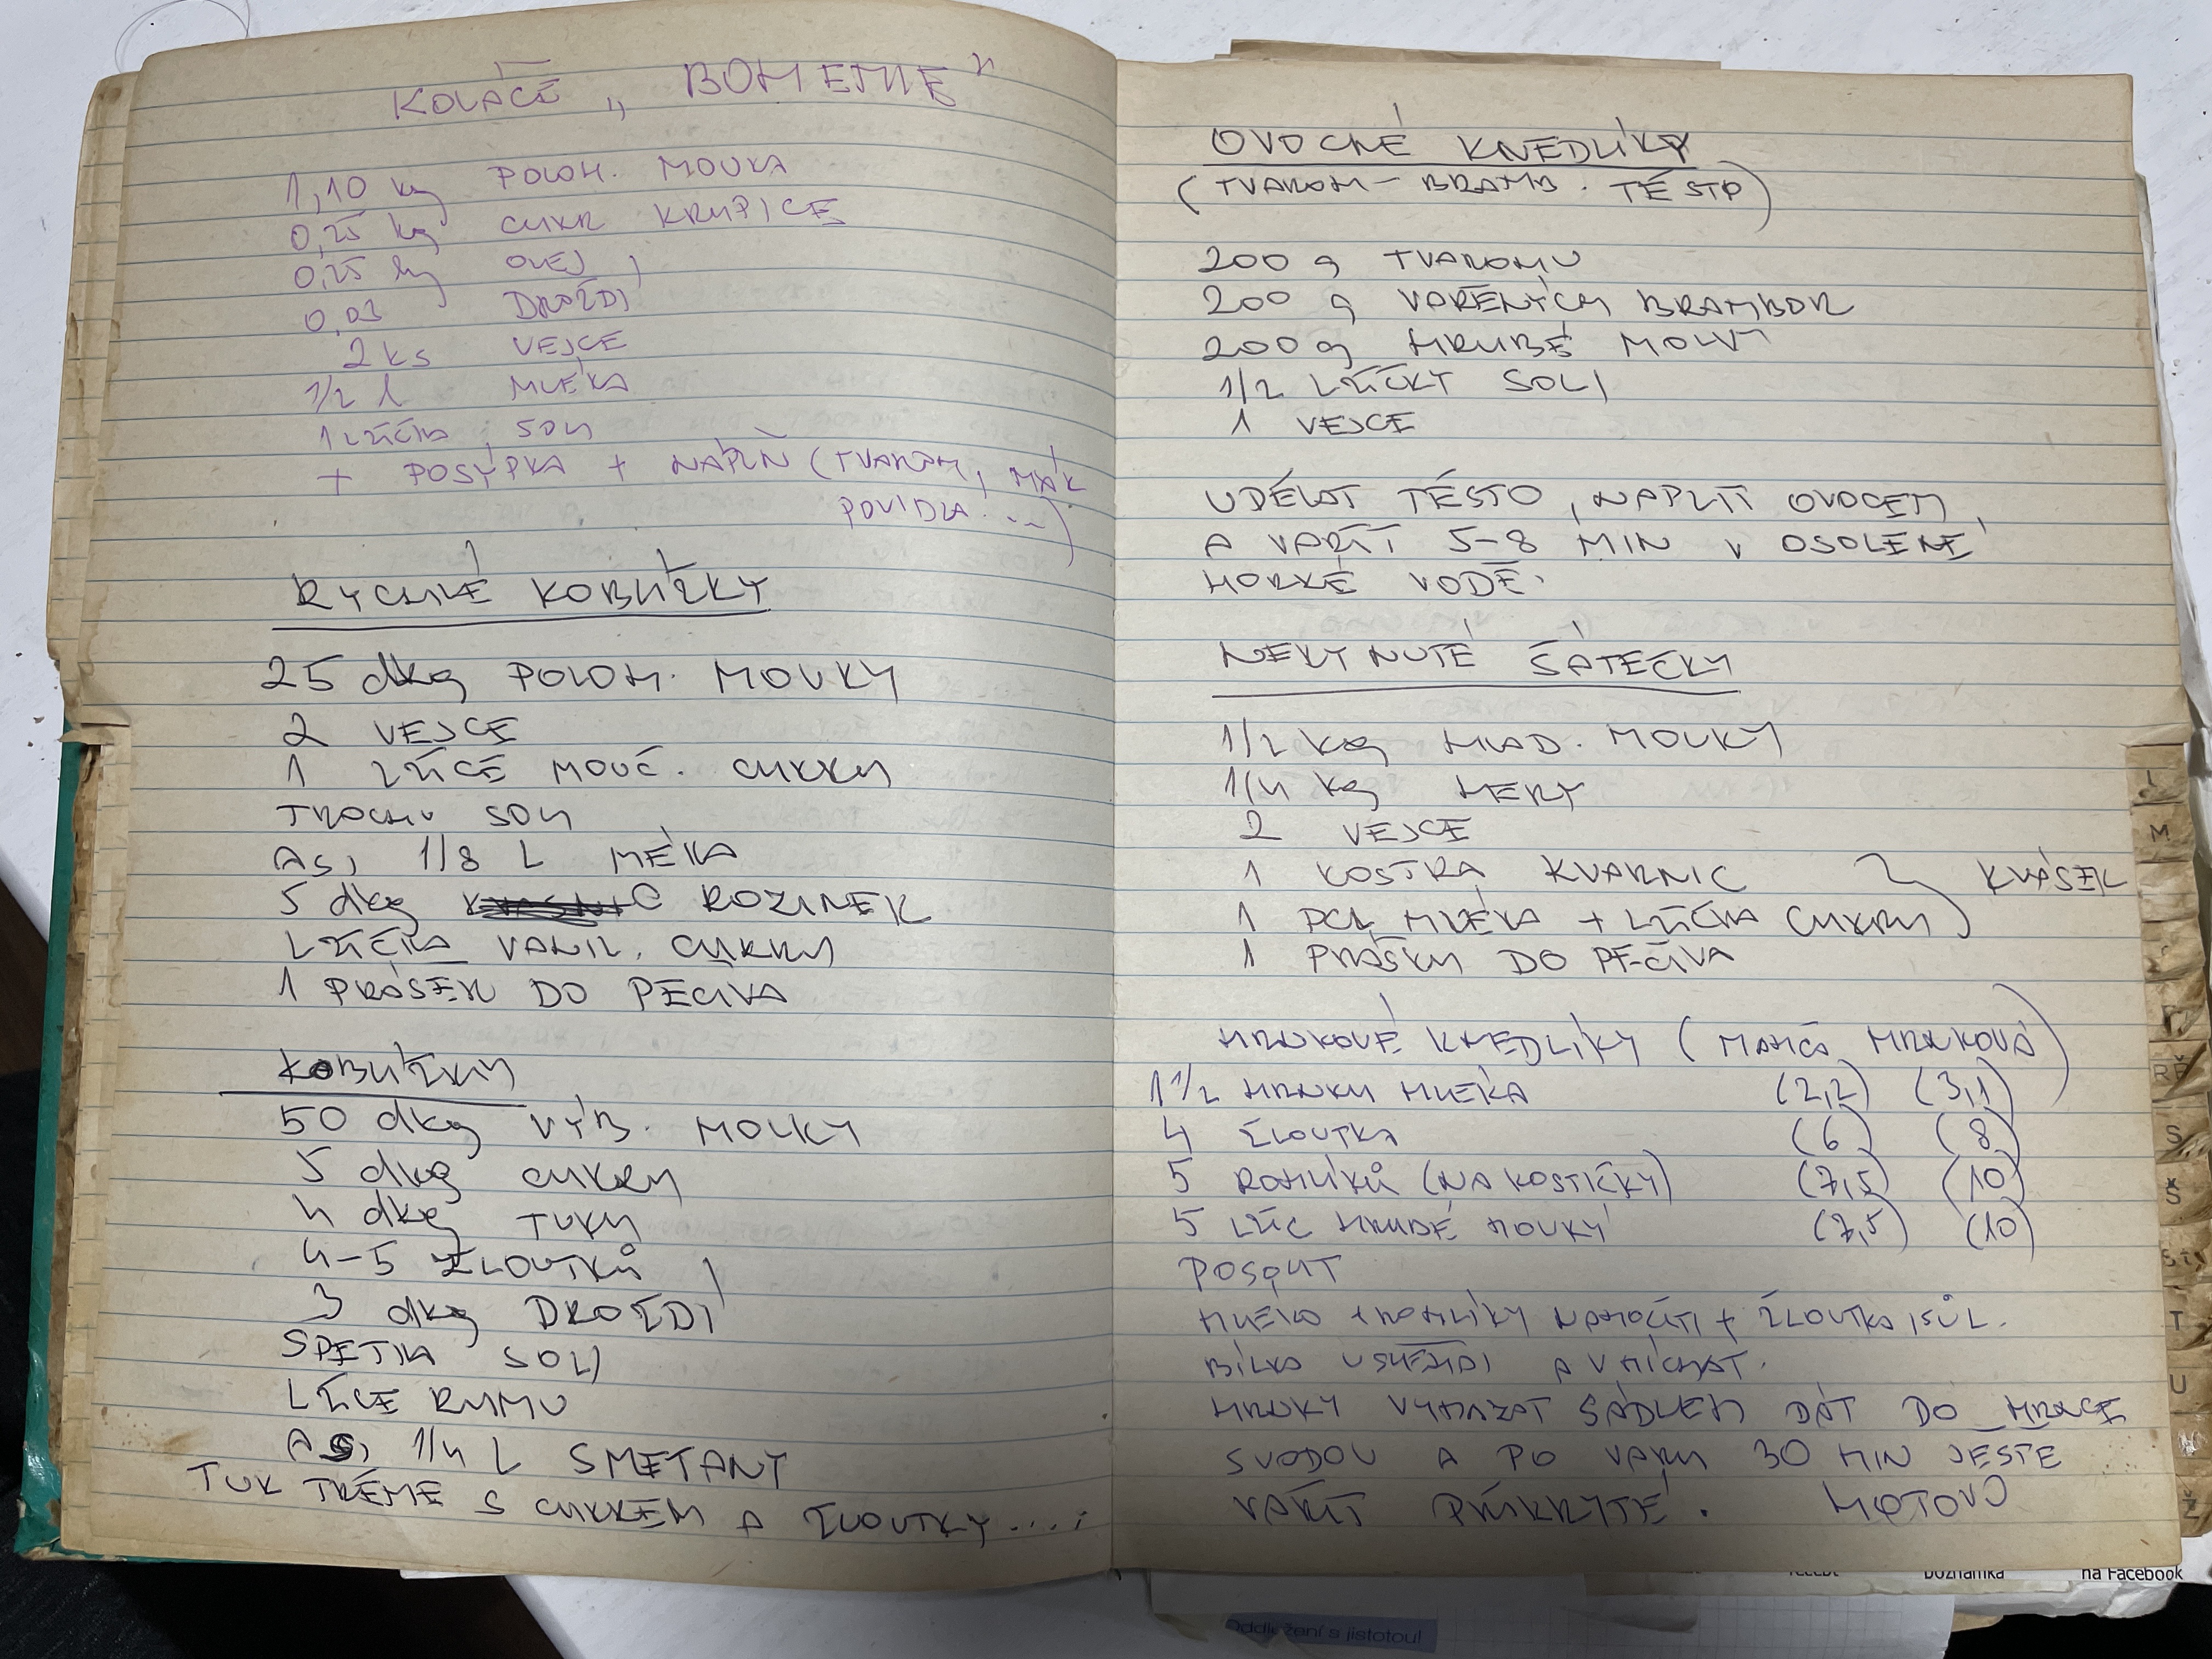 KOLÁČE „BOHEMIE"
1,10 kg POLOH. MOUKA
0,25 kg CUKR KRUPICE
0,25 kg OLEJ
0,03 DROŽDÍ
2 ks VEJCE
1/2 l MLÉKA
1 LŽIČKA SOLI
+ POSYPKA + NÁPLŇ (TVAROH, MÁK
POVIDLA...)
RYCHLÉ KOBLÍŽKY
25 dkg POLOH. MOUKY
2 VEJCE
1 LŽÍCE MOUČ. CUKRU
TROCHU SOLI
ASI 1/8 L MLÉKA
5 dkg ROZINEK
LŽIČKA VANIL. CUKRU
1 PRÁŠEK DO PEČIVA
KOBLIŽKY
50 dkg VÝB. MOUKY
5 dkg CUKRU
4 dkg TUKU
4-5 ŽLOUTKŮ
3 dkg DROŽDÍ
ŠPETKA SOLI
LŽÍCE RUMU
ASI 1/4 L SMETANY
TUK TŘEME S CUKREM A ŽLOUTKY....
OVOCNÉ KNEDLÍKY
(TVAROH-BRAMB. TĚSTO)
200 g TVAROHU
200 g VAŘENÝCH BRAMBOR
200 g HRUBÉ MOUKY
1/2 LŽIČKY SOLI
1 VEJCE
UDĚLAT TĚSTO, NAPLNIT OVOCEM
A VAŘIT 5-8 MIN V OSOLENÉ
HORKÉ VODĚ.
NEKYNUTÉ ŠÁTEČKY
1/2 kg HLAD. MOUKY
1/4 kg HERY
2 VEJCE
1 KOSTKA KVASNIC
1 DCL MLÉKA + LŽIČKA CUKRU) KVÁSEK
1 PRÁŠEK DO PEČIVA
HRNKOVÉ KNEDLÍKY (
1 1/2 HRNKU MLÉKA (2,2) (3,1)
4 ŽLOUTKY (6) (8)
5 ROHLÍKŮ (NA KOSTIČKY) (7,5) (10)
5 LŽIC HRUBÉ MOUKY (7,5) (10)
POSOLIT
MLÉKO + ROHLÍKY NAMOČIT + ŽLOUTKO, SŮL.
BÍLKO UŠLEHAT A VMÍCHAT.
HRNKY VYMAZAT SÁDLEM DÁT DO HRNCE
S VODOU A PO VARU 30 MIN JEŠTĚ
VAŘIT PŘIKRYTÉ. HOTOVO
L
M
S
Š
T
U
Ž
na Facebook